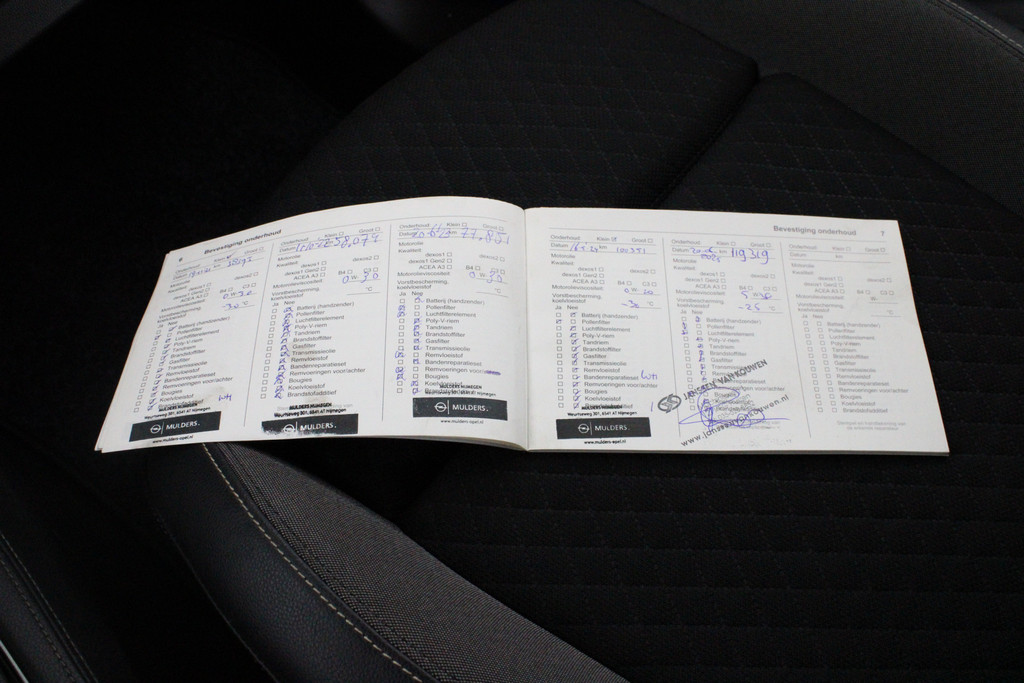 6 Bevestiging onderhoud
Onderhoud: Klein Groot
Datum km
Motorolie
Kwaliteit:
dexos1 dexos2
dexos1 Gen2
ACEA A3 B4 C3
Motorolieviscositeit:
0 W 30
Vorstbescherming,
koelvloeistof
-30 °C
Ja Nee
Batterij (handzender)
Pollenfilter
Luchtfilterelement
Poly-V-riem
Tandriem
Brandstoffilter
Gasfilter
Transmissieolie
Remvloeistof
Bandenreparatieset
Remvoeringen voor/achter
Bougies
Koelvloeistof
MULDERS NIJMEGEN
Weurtseweg 301, 6541 AT Nijmegen
MULDERS.
www.mulders-opel.nl
Onderhoud: Klein Groot
Datum km 58,079
Motorolie
Kwaliteit:
dexos1 dexos2
dexos1 Gen2
ACEA A3 B4 C3
Motorolieviscositeit:
0 W 30
Vorstbescherming,
koelvloeistof
°C
Ja Nee
Batterij (handzender)
Pollenfilter
Luchtfilterelement
Poly-V-riem
Tandriem
Brandstoffilter
Gasfilter
Transmissieolie
Remvloeistof
Bandenreparatieset
Remvoeringen voor/achter
Bougies
Koelvloeistof
Brandstofadditief
MULDERS NIJMEGEN
Weurtseweg 301, 6541 AT Nijmegen
MULDERS.
Onderhoud: Klein Groot
Datum km 77,821
Motorolie
Kwaliteit:
dexos1 dexos2
dexos1 Gen2
ACEA A3 B4 C3
Motorolieviscositeit:
0 W 30
Vorstbescherming,
koelvloeistof
°C
Ja Nee
Batterij (handzender)
Pollenfilter
Luchtfilterelement
Poly-V-riem
Tandriem
Brandstoffilter
Gasfilter
Transmissieolie
Remvloeistof
Bandenreparatieset
Remvoeringen
Bougies
Koelvloeistof
MULDERS NIJMEGEN
Weurtseweg 301, 6541 AT Nijmegen
MULDERS.
www.mulders-opel.nl
Bevestiging onderhoud 7
Onderhoud: Klein Groot
Datum km 100351
Motorolie
Kwaliteit:
dexos1 dexos2
dexos1 Gen2
ACEA A3 B4 C3
Motorolieviscositeit:
0 W
Vorstbescherming,
koelvloeistof
°C
Ja Nee
Batterij (handzender)
Pollenfilter
Luchtfilterelement
Poly-V-riem
Tandriem
Brandstoffilter
Gasfilter
Transmissieolie
Remvloeistof
Bandenreparatieset
Remvoeringen voor/achter
Bougies
Koelvloeistof
MULDERS NIJMEGEN
Weurtseweg 301, 6541 AT Nijmegen
MULDERS.
www.mulders-opel.nl
Onderhoud: Klein Groot
Datum km 119319
Motorolie
Kwaliteit:
dexos1 dexos2
dexos1 Gen2
ACEA A3 B4 C3
Motorolieviscositeit:
5 W 30
Vorstbescherming,
koelvloeistof
-25 °C
Ja Nee
Batterij (handzender)
Pollenfilter
Luchtfilterelement
Poly-V-riem
Tandriem
Brandstoffilter
Gasfilter
Transmissieolie
Remvloeistof
JANSSEN VAN KOUWEN
www.janssenvankouwen.nl
Onderhoud: Klein Groot
Datum: km
Motorolie
Kwaliteit:
dexos1 dexos2
dexos1 Gen2
ACEA A3 B4 C3
Motorolieviscositeit:
W-
Vorstbescherming,
koelvloeistof
°C
Ja Nee
Batterij (handzender)
Pollenfilter
Luchtfilterelement
Poly-V-riem
Tandriem
Brandstoffilter
Gasfilter
Transmissieolie
Remvloeistof
Bandenreparatieset
Remvoeringen voor/achter
Bougies
Koelvloeistof
Brandstofadditief